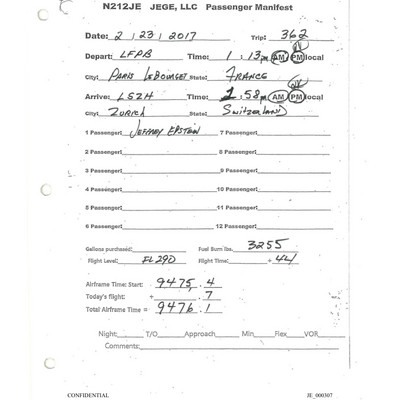 N212JE JEGE, LLC Passenger Manifest
Date: 2 / 23 / 2017 Trip: 362
Depart: LFPB Time: 1 : 13 pm AM, PM local
City: PARIS LEBOURGET State: FRANCE
Arrive: LSZH Time: 1:58 pm AM PM local
City: ZURICH State: SWITZERLAND
1 Passenger: JEFFREY EPSTEIN 7 Passenger:
2 Passenger: 8 Passenger:
3 Passenger: 9 Passenger:
4 Passenger: 10 Passenger:
5 Passenger: 11 Passenger:
6 Passenger: 12 Passenger:
Gallons purchased: Fuel Burn lbs. 3255
Flight Level: FL290 Flight Time: + 44
Airframe Time: Start: 9475 . 4
Today's flight: + . 7
Total Airframe Time = 9476 . 1
Night: T/O Approach Min Flex VOR
Comments:
CONFIDENTIAL JE_000307